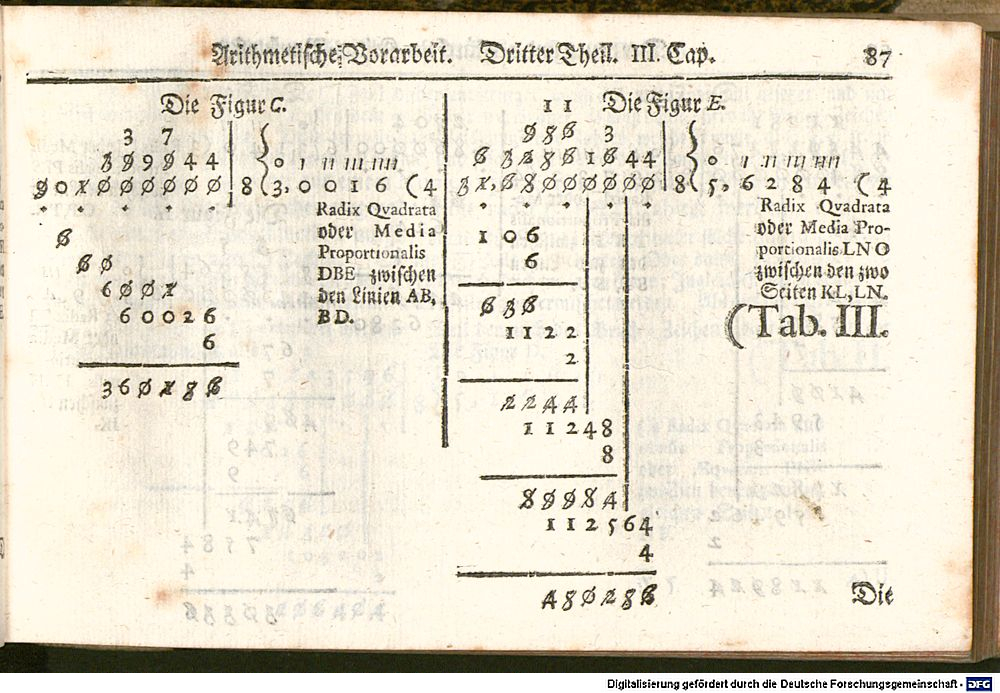 Arithmetische Vorarbeit. Dritter Theil. III. Cap. 87
Die Figur C.
3 7
3 9 9 0 4 4 | { 0 I II III IIII
9 0 1 0 0 0 0 0 0 0 | 8 { 3, 0 0 1 6 ( 4
. . . . .
6
6 0
6 0 0 1
6 0 0 2 6
6
3 6 0 1 8 6
Radix Qvadrata
oder Media
Proportionalis
DBE zwischen
den Linien AB,
BD.
1 1 Die Figur E.
0 8 6 3
6 3 2 8 0 1 0 4 4 | { 0 I II III IIII
3 1, 6 8 0 0 0 0 0 0 0 | 8 { 5, 6 2 8 4 ( 4
. . . . .
1 0 6
6
6 3 6
1 1 2 2
2
2 2 4 4
1 1 2 4 8
8
8 9 9 8 4
1 1 2 5 6 4
4
4 8 0 2 8 6
Radix Qvadrata
oder Media Pro-
portionalis LN O
zwischen den zwo
Seiten KL, LN.
(Tab. III.
Die
Digitalisierung gefördert durch die Deutsche Forschungsgemeinschaft - DFG